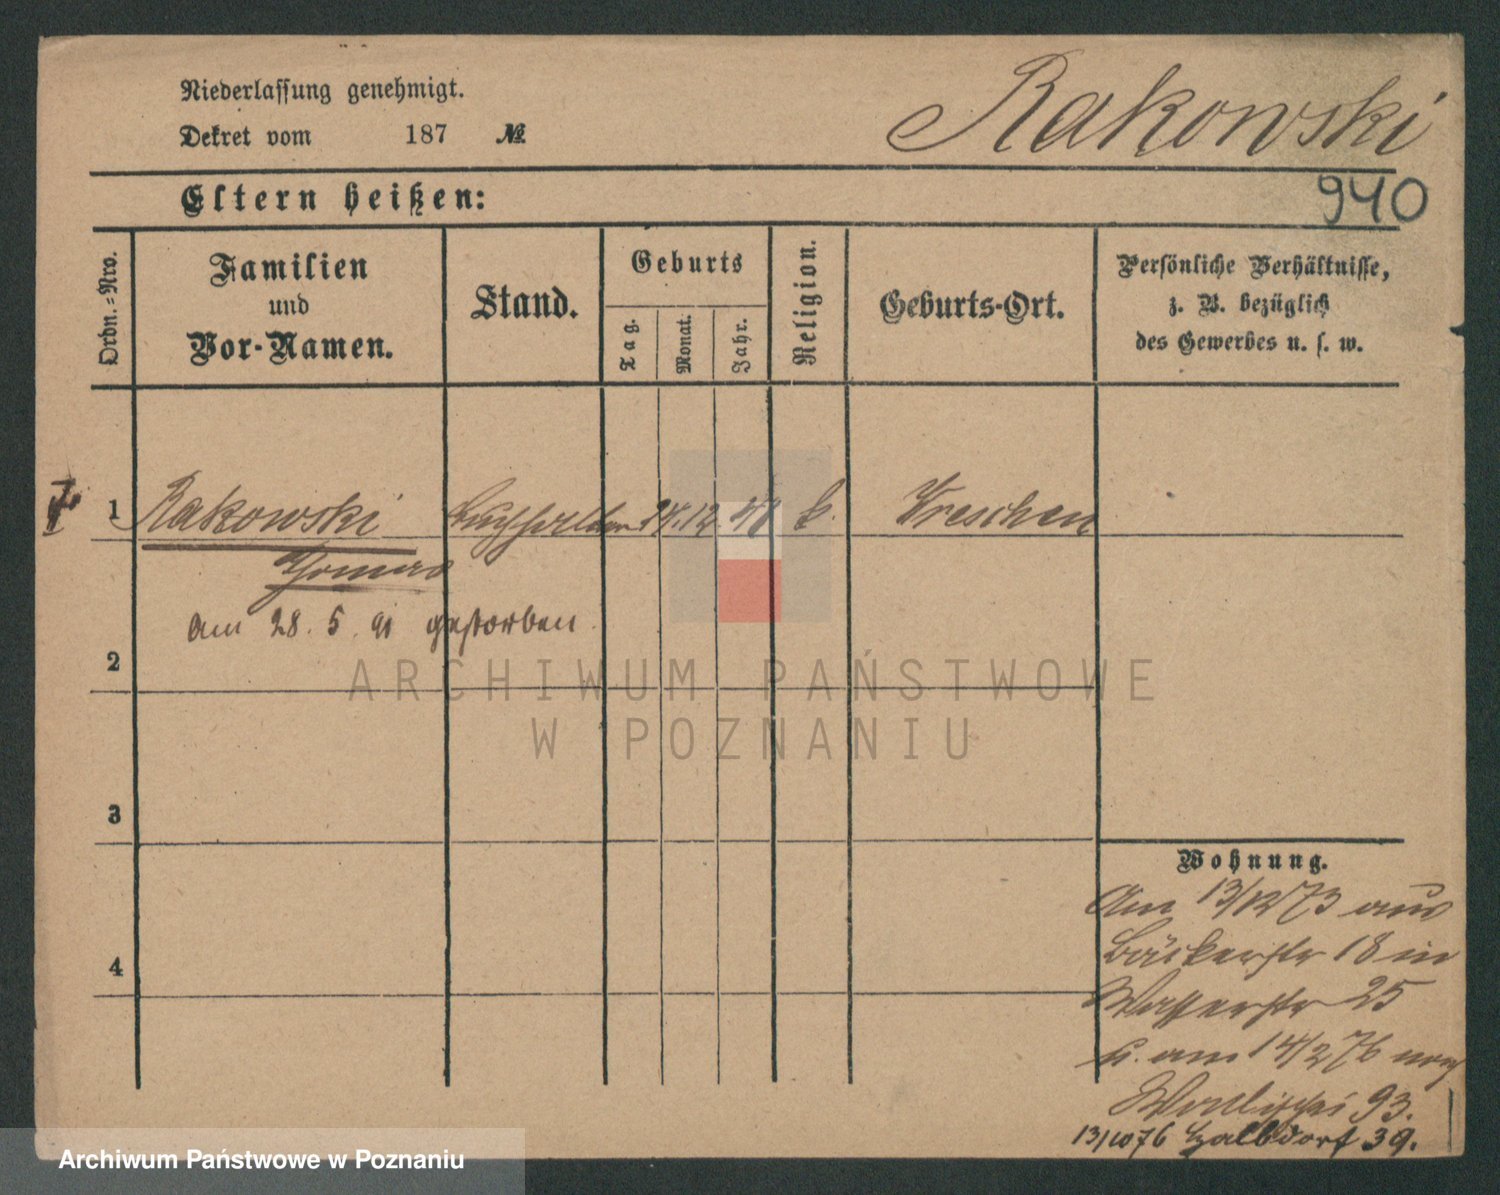 Rakowski
Niederlassung genehmigt.
Dekret vom 187 №
Eltern heißen:
940
Ordn.=Nro.
Familien
und
Vor-Namen.
Stand.
Geburts
Tag.
Monat.
Jahr.
Religion.
Geburts-Ort.
Persönliche Verhältnisse,
z. B. bezüglich
des Gewerbes u. s. w.
1 Rakowski Buchhalter 14. 12 48 k. Wreschen
am 28. 5. 91 gestorben.
2
ARCHIWUM PAŃSTWOWE
W POZNANIU
3
4
Wohnung.
Am 13/12 73 aus
Bäckerstr 18 in
Wasserstr 25
u. am 14/2 76 nach
93.
13/10 76 Halbdorf 39.
Archiwum Państwowe w Poznaniu